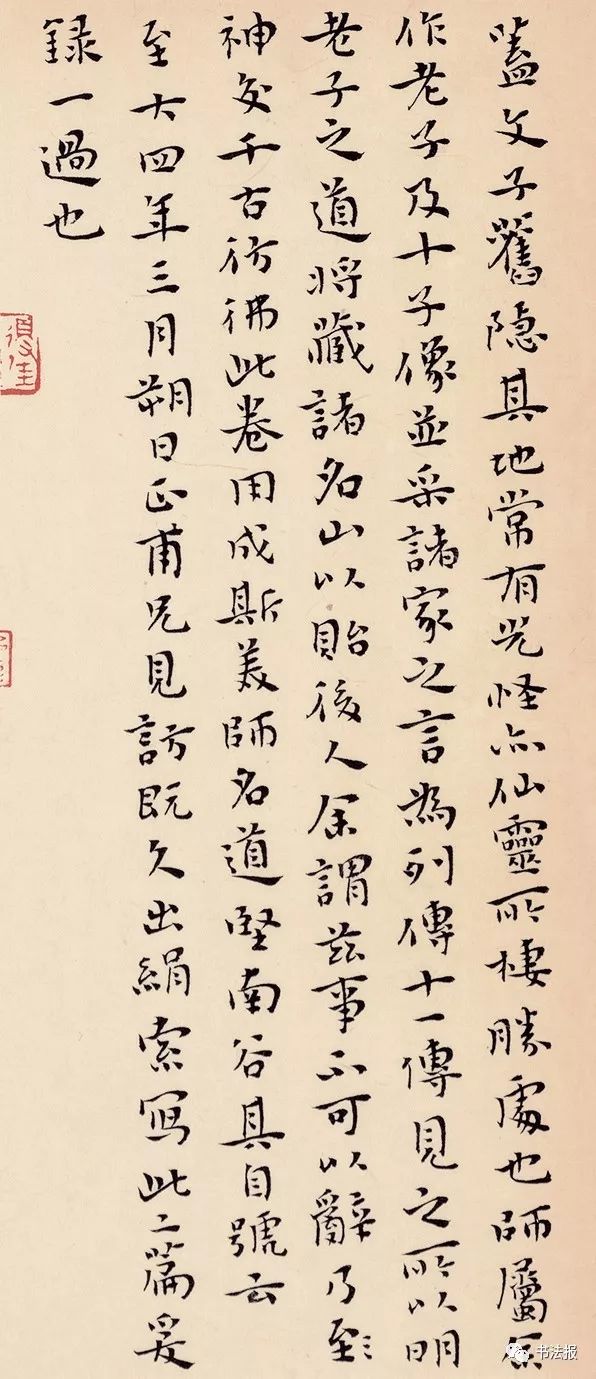 蓋文子舊隱其地常有光怪亦仙靈所棲勝處也師屬余
作老子及十子像並采諸家之言為列傳十一傳見之所以明
老子之道將藏諸名山以貽後人余謂茲事不可以辭乃至
神交千古彷彿此卷用成斯美師名道堅南谷其自號云
至大四年三月朔日正甫兄見訪既久出絹索寫此二篇爰
錄一過也
书法报